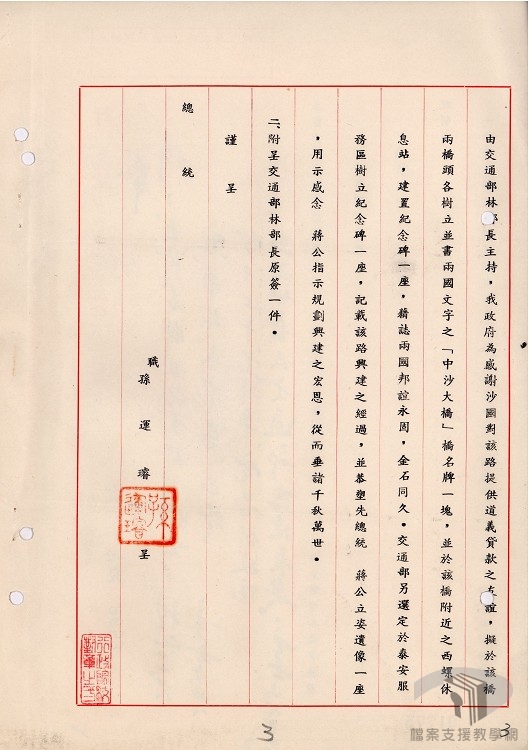 由交通部林部長主持，我政府為感謝沙國對該路提供道義貸款之友誼，擬於該橋
兩橋頭各樹立並書兩國文字之「中沙大橋」橋名牌一塊，並於該橋附近之西螺休
息站，建置紀念碑一座，藉誌兩國邦誼永固，金石同久。交通部另選定於泰安服
務區樹立紀念碑一座，記載該路興建之經過，並恭塑先總統　蔣公立姿遺像一座
，用示感念　蔣公指示規劃興建之宏恩，從而垂諸千秋萬世。
二、附呈交通部林部長原簽一件。
謹呈
總統
職孫運璿呈
孫運璿
3
3
檔案支援教學網